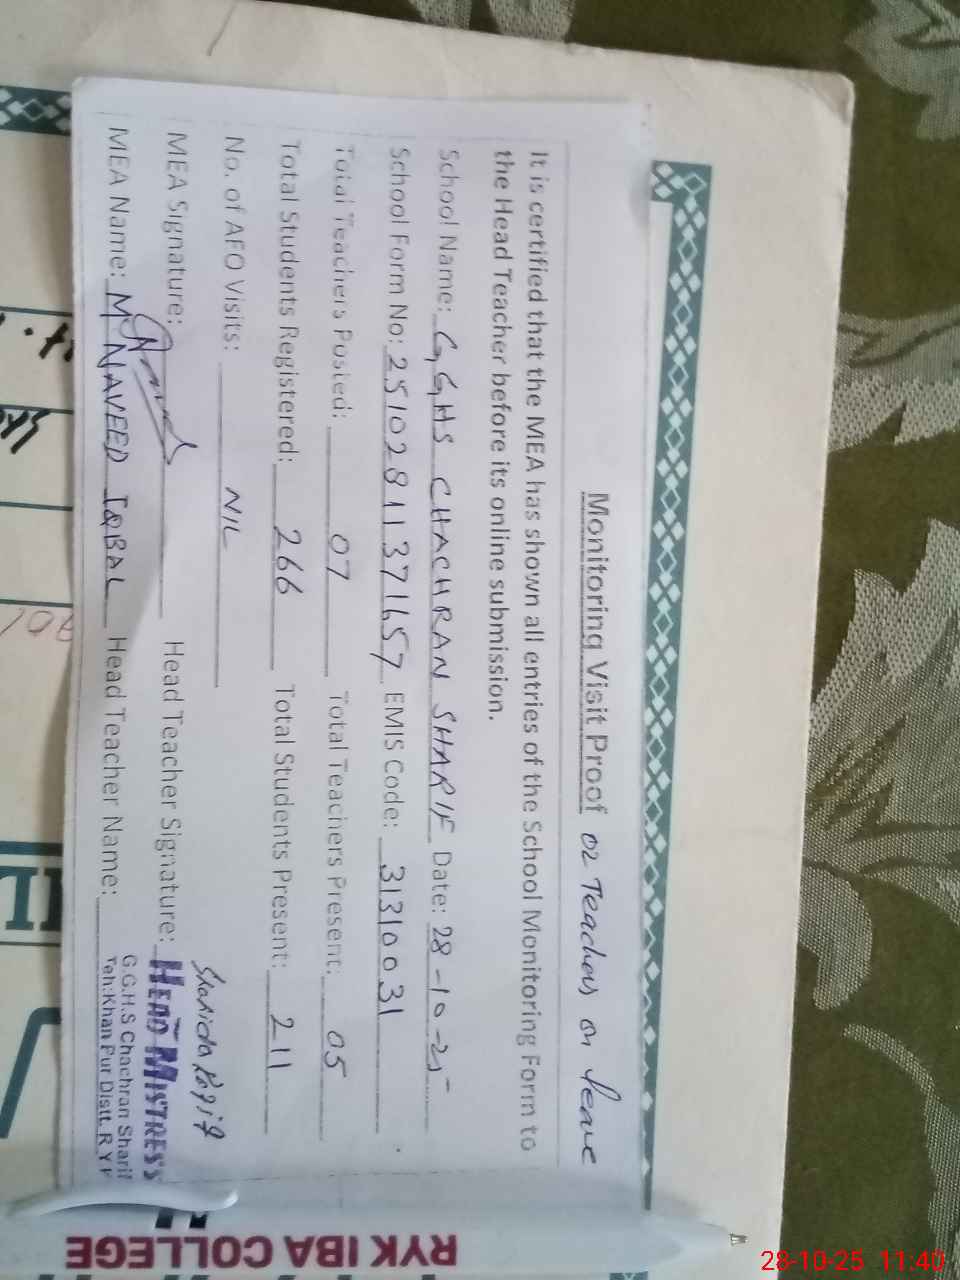 Monitoring Visit Proof 02 Teachers on leave
It is certified that the MEA has shown all entries of the School Monitoring Form to
the Head Teacher before its online submission.
School Name: G,GHS CHACHRAN SHARIF Date: 28-10-25
School Form No: 25102811371657 EMIS Code: 31310031
Total Teachers Posted: 07 Total Teachers Present: 05
Total Students Registered: 266 Total Students Present: 211
No. of AEO Visits: NIL
MEA Signature: Head Teacher Signature: HEAD MISTRESS
MEA Name: M NAVEED IQBAL Head Teacher Name: G.G.H.S Chachran Sharif
Teh:Khan Pur Distt. R.Y.K
RYK IBA COLLEGE
28-10-25 11:40